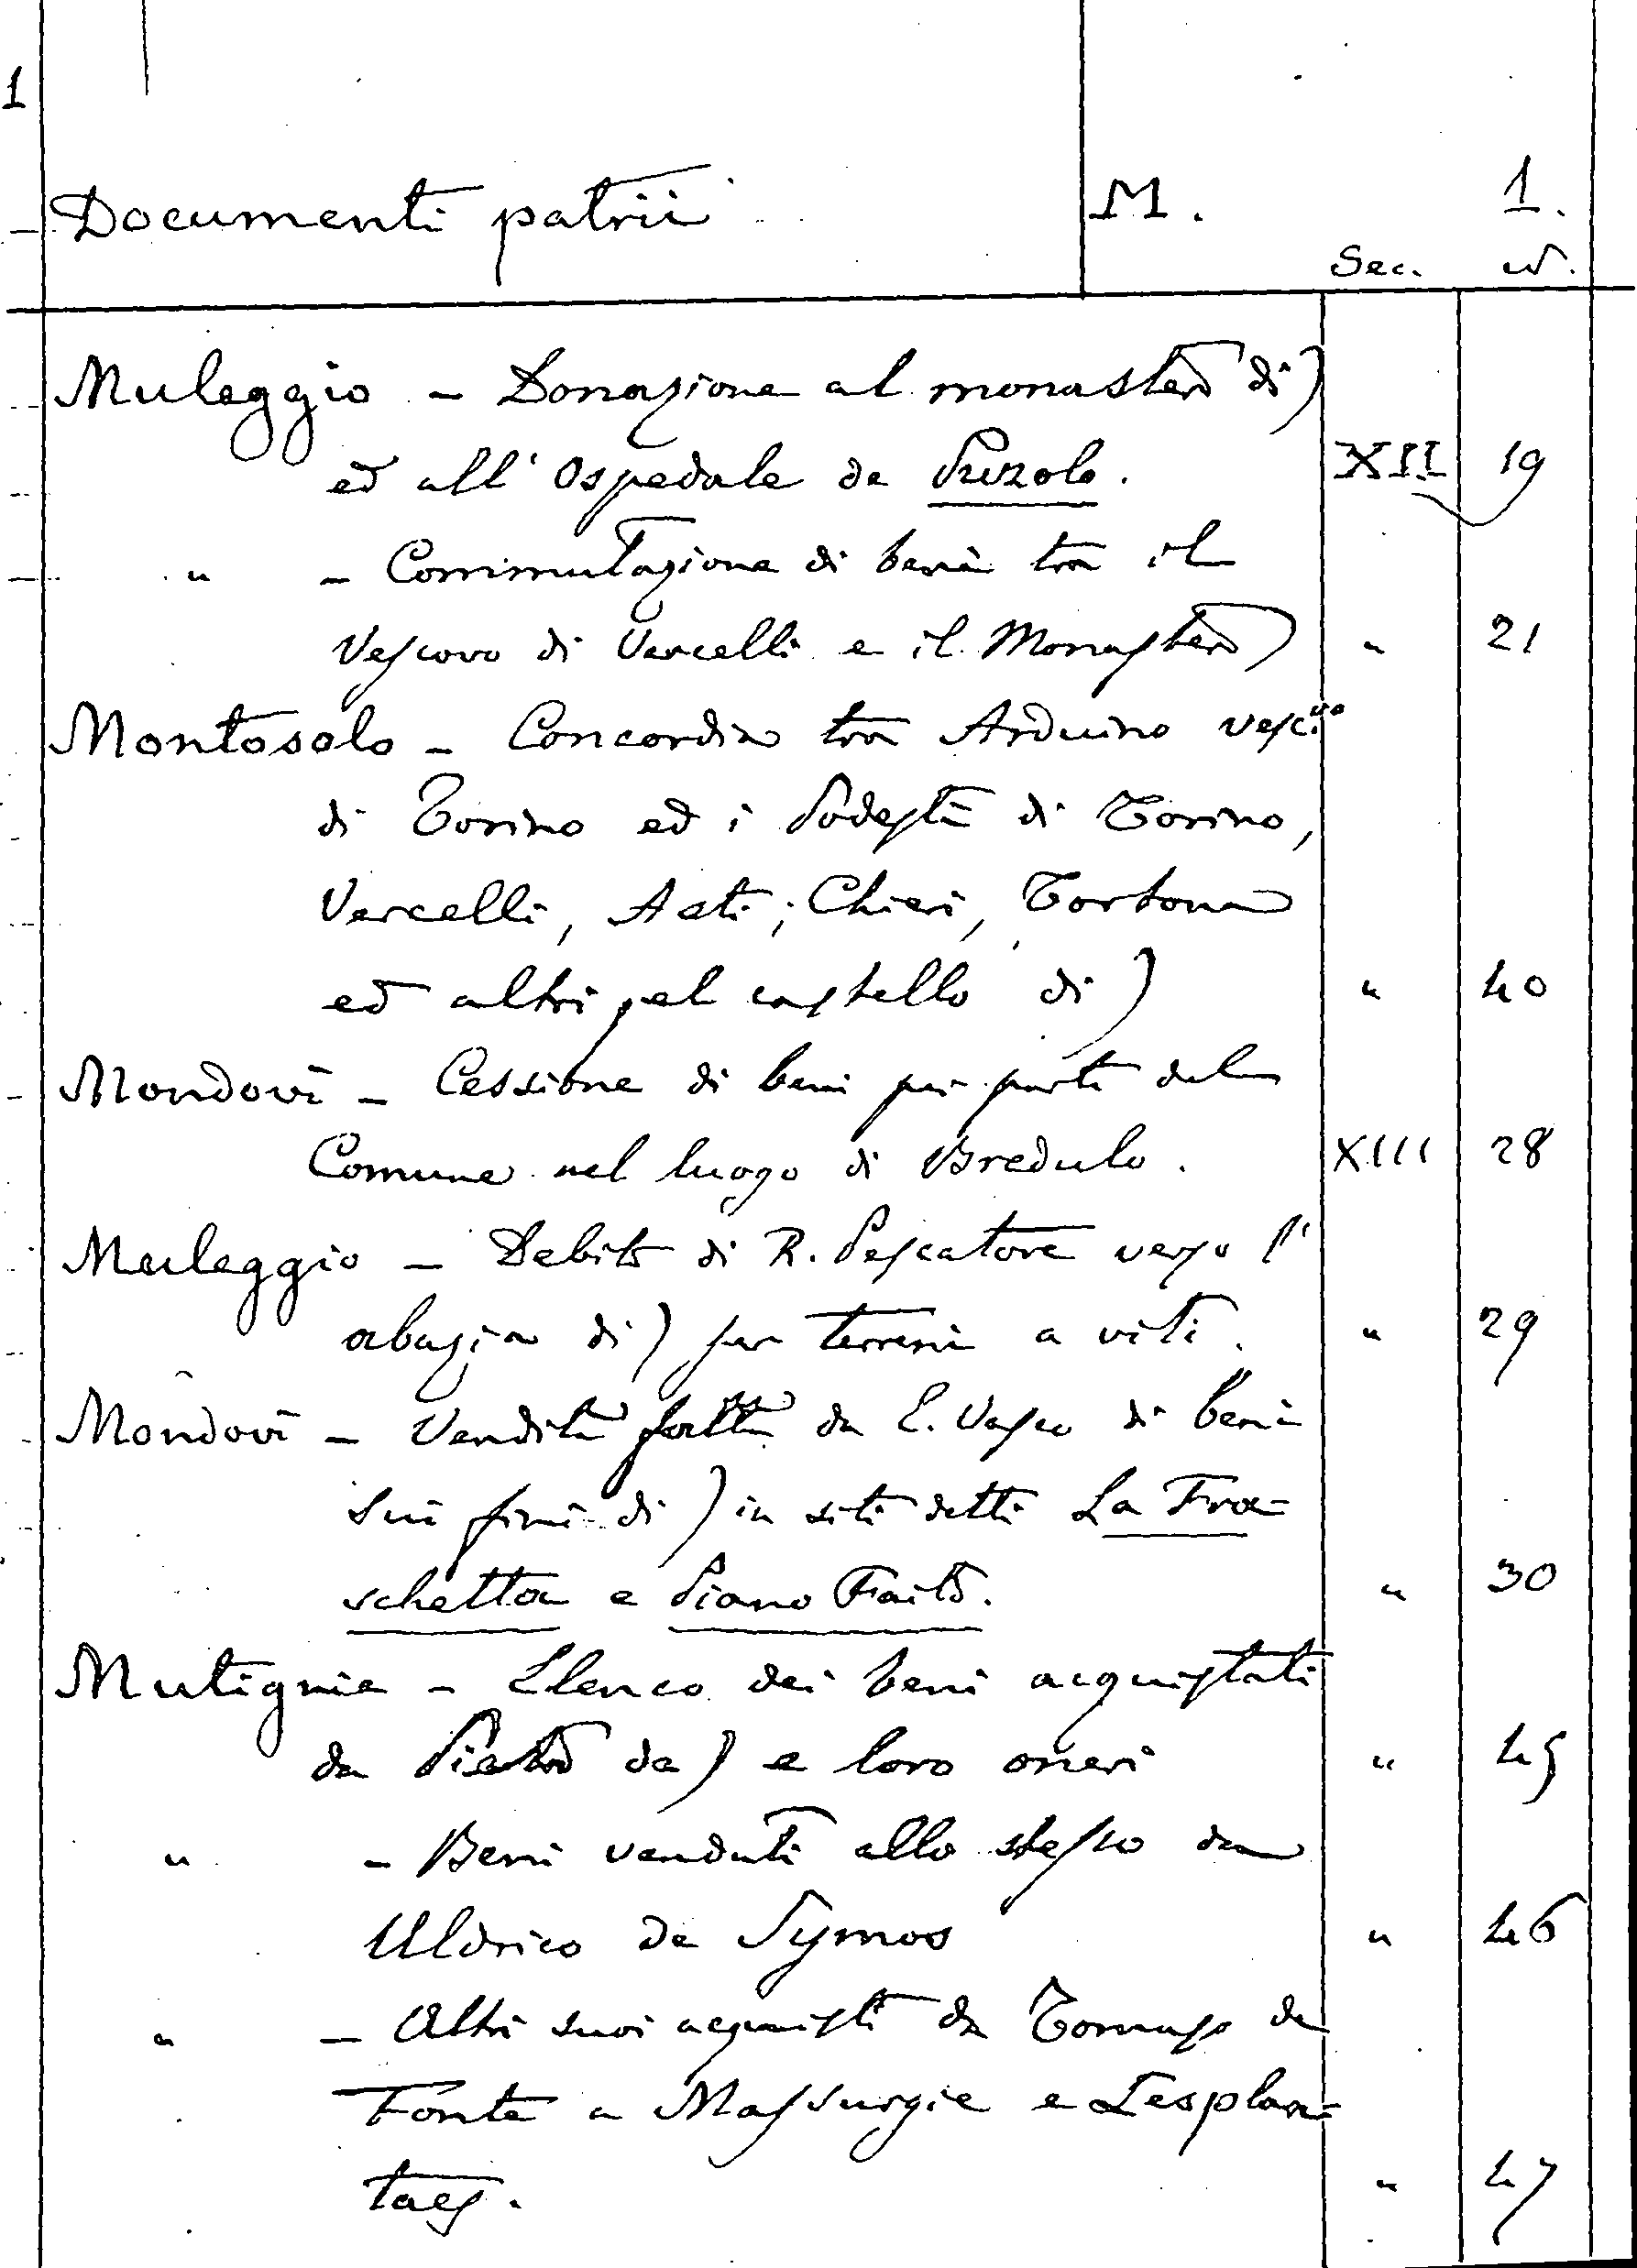 1
Documenti patrii M. 1.
Sec. N.
Muleggio - Donazione al monastero di)
ed all'Ospedale de Puzolo. XII 19
" - Commutazione di beni tra il
Vescovo di Vercelli e il Monastero) " 21
Montosolo - Concordia tra Arduino vesc.vo
di Torino ed i Podestà di Torino,
Vercelli, Asti, Chieri, Tortona
ed altri pel castello di) " 40
Mondovì - Cessione di beni per parte del
Comune nel luogo di Bredulo. XIII 28
Muleggio - Debito di R. Pescatore verso l'
abazia di) per terreni a viti. " 29
Mondovì - Vendita fatta da E. Vasco di beni
sui fini di) in siti detti La Fra=
schetta e Piano Faito. " 30
Mutignie - Elenco dei beni acquistati
da Pietro de) e loro oneri " 45
" - Beni venduti allo stesso da
Uldrico de Symos " 46
" - Altri suoi acquisti da Tomaso de
Fonte a Massurgie e Lesplan=
taes. " 47